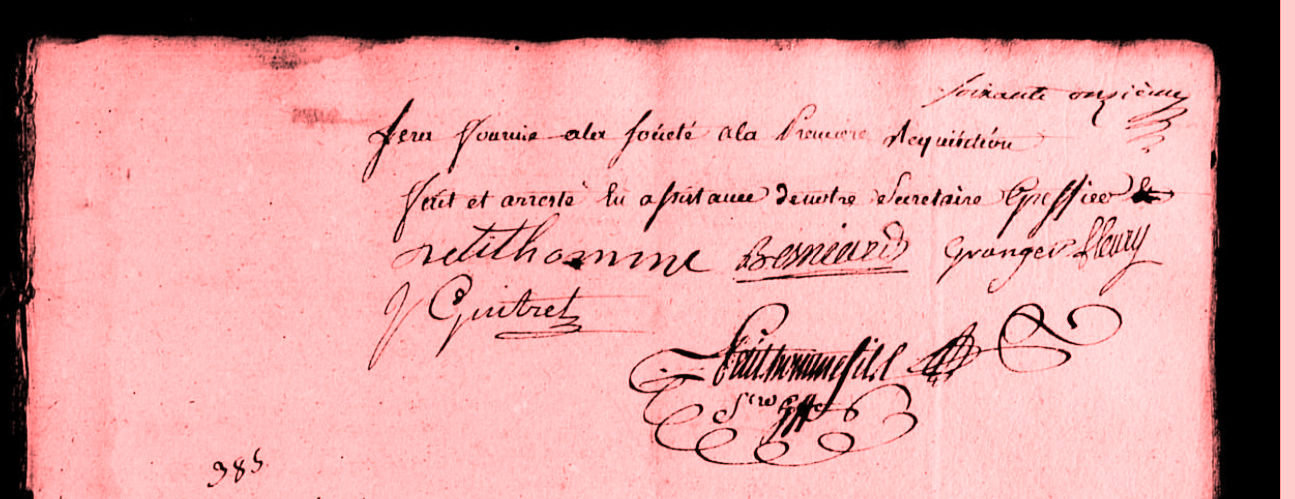 Soixante onzième
Sera fournie ala société ala Premiere Requisition
fait et arresté lu assistance denotre Secretaire Greffier
petithomme Besniard Granger fleury
J Guitret
Petithomme fils
Scre Gffer
385